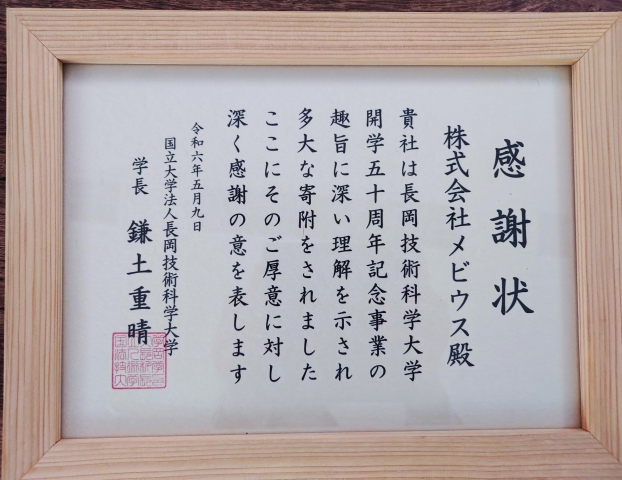 感謝状
株式会社メビウス殿
貴社は長岡技術科学大学
開学五十周年記念事業の
趣旨に深い理解を示され
多大な寄附をされました
ここにそのご厚意に対し
深く感謝の意を表します
令和六年五月九日
国立大学法人長岡技術科学大学
学長 鎌土重晴